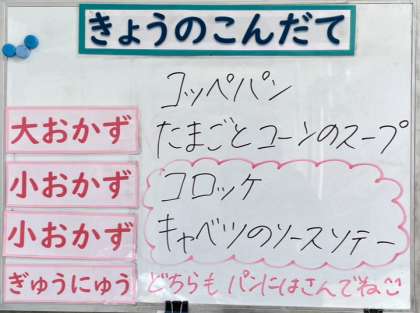 きょうのこんだて
コッペパン
大おかず たまごとコーンのスープ
小おかず コロッケ
小おかず キャベツのソースソテー
ぎゅうにゅう どちらも パンにはさんでね